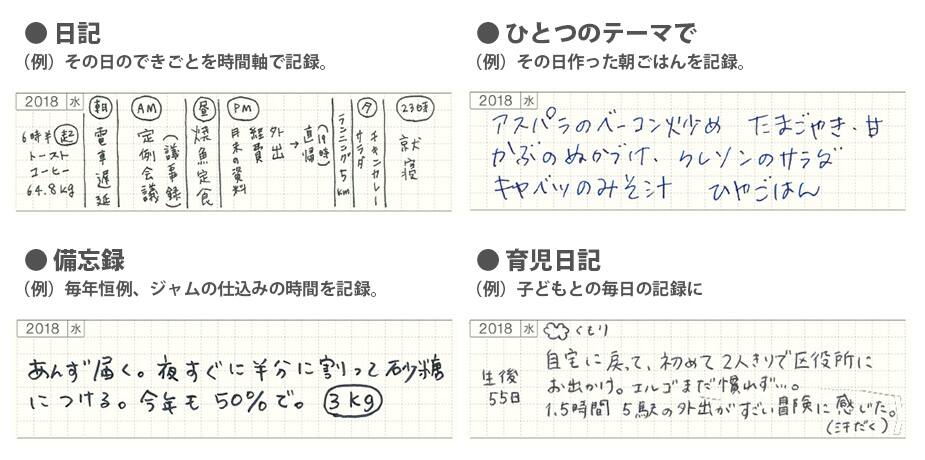 ● 日記
（例）その日のできごとを時間軸で記録。
2018 水
6時半 起
トースト
コーヒー
64.8kg
朝
電車遅延
AM
定例会議
（議事録）
昼
焼魚定食
PM
月末の資料
経費
外出→直帰（19時）
ランニング5km
夕
サラダ
チキンカレー
23時
就寝
● ひとつのテーマで
（例）その日作った朝ごはんを記録。
2018 水
アスパラのベーコン炒め　たまごやき・甘
かぶのぬかづけ、クレソンのサラダ
キャベツのみそ汁　ひやごはん
● 備忘録
（例）毎年恒例、ジャムの仕込みの時間を記録。
2018 水
あんず届く。夜すぐに半分に割って砂糖
につける。今年も50%で。 3kg
● 育児日記
（例）子どもとの毎日の記録に
2018 水 くもり
生後
55日
自宅に戻って、初めて2人きりで区役所に
お出かけ。エルゴまだ慣れず…。
1.5時間 5駅の外出がすごい冒険に感じた。
（汗だく）